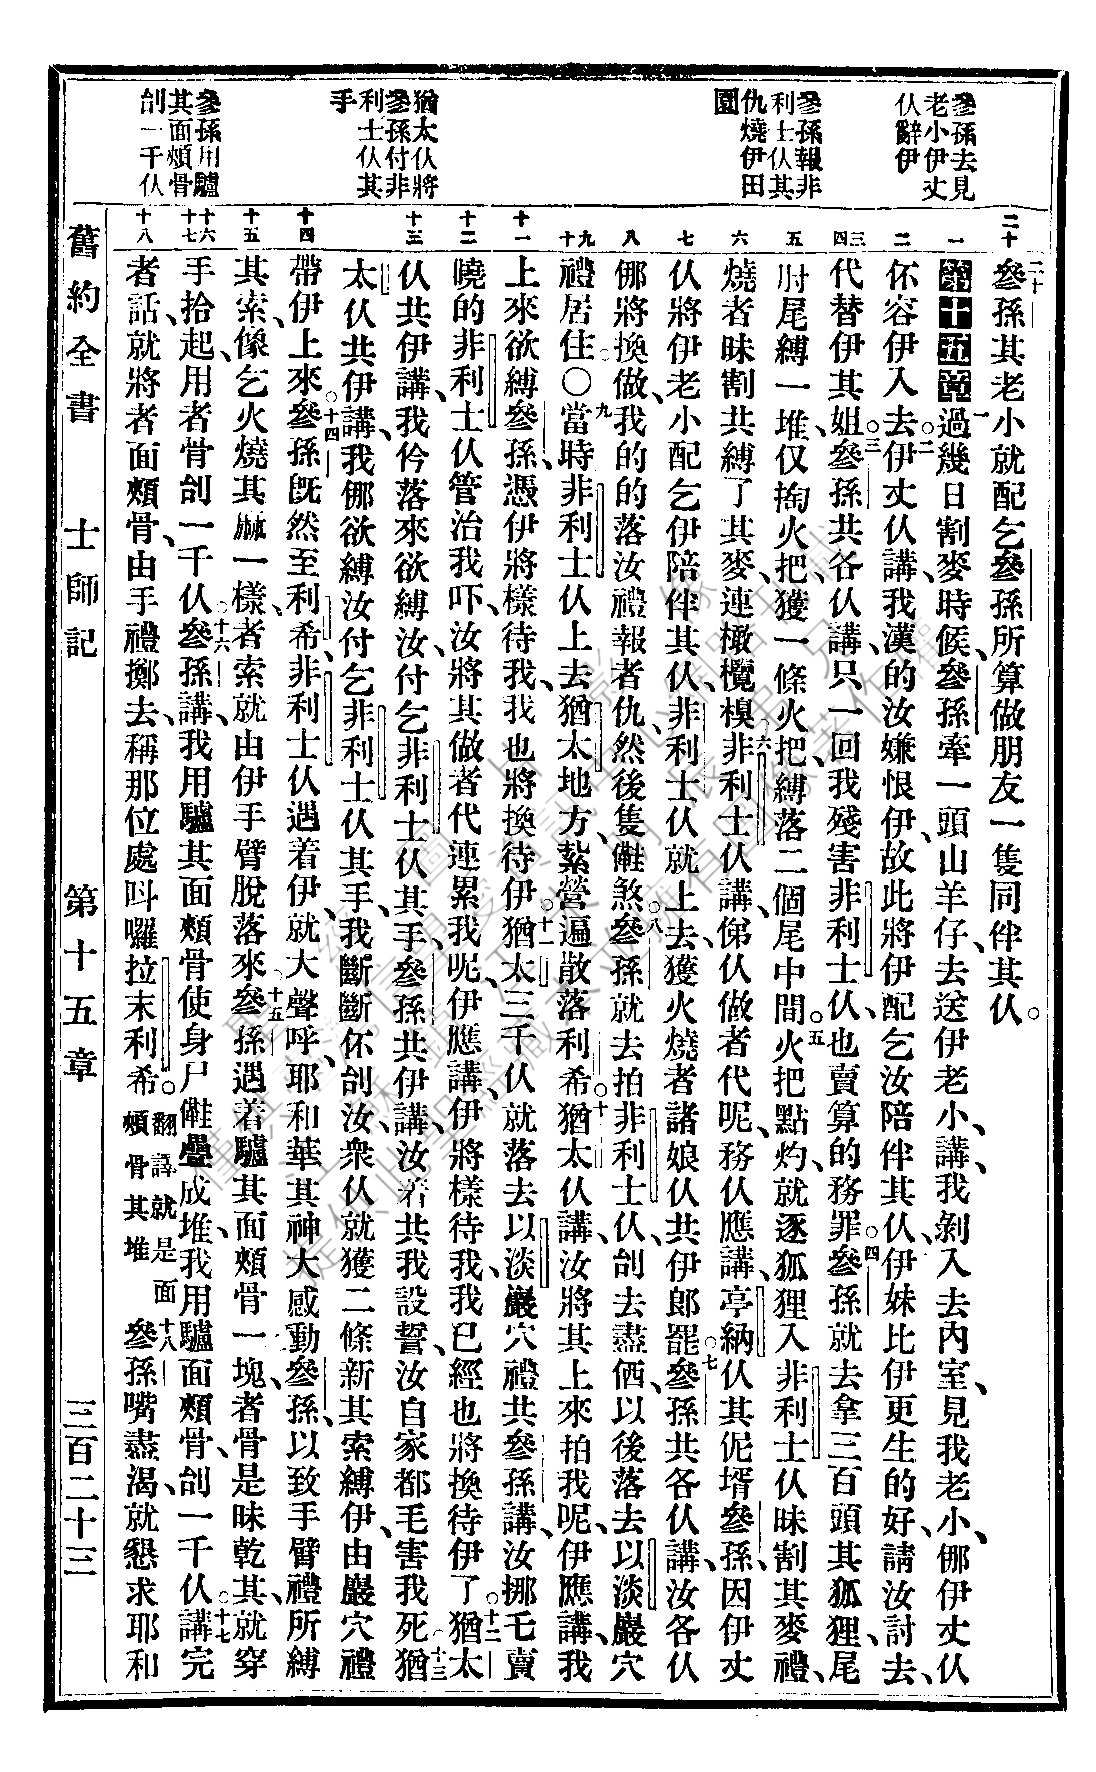 參孫去見
老小伊丈
仈辭伊
參孫報非
利士仈其
仇燒伊田
園
猶太仈將
參孫付非
利士仈其
手
參孫用驢
其面頰骨
刣一千仈
二十
一
二
三
四
五
六
七
八
九
十
十一
十二
十三
十四
十五
十六
十七
十八
二十參孫其老小就配乞參孫所算做朋友一隻同伴其仈。
第十五章一過幾日割麥時候、參孫牽一頭山羊仔、去送伊老小、講、我剝入去內室、見我老小、㑚伊丈仈
伓容伊入去。二伊丈仈講、我漢的汝嫌恨伊、故此將伊配乞汝陪伴其仈、伊妹比伊更生的好、請汝討去、
代替伊其姐。三參孫共各仈講、只一回我殘害非利士仈、也賣算的務罪。四參孫就去拿三百頭其狐狸、尾
肘尾縛一堆、仅掏火把、獲一條火把、縛落二個尾中間。五火把點灼、就逐狐狸入非利士仈昧割其麥禮、
燒者昧割共縛了其麥、連橄欖模。六非利士仈講、俤仈做者代呢、務仈應講、亭納仈其伲壻參孫、因伊丈
仈將伊老小配乞伊陪伴其仈、非利士仈就上去、獲火燒者諸娘仈共伊郎罷。七參孫共各仈講、汝各仈
㑚將換做、我的的落汝禮報者仇、然後隻㒕煞。八參孫就去拍非利士仈、刣去盡価、以後落去、以淡巖穴
禮居住。〇九當時非利士仈上去、猶太地方、紥營、遍散落利希。十猶太仈講、汝將其上來拍我呢、伊應講、我
上來欲縛參孫、憑伊將樣待我、我也將換待伊。十一猶太三千仈、就落去以淡巖穴禮、共參孫講、汝挪乇賣
曉的非利士仈管治我吓、汝將其做者代連累我呢、伊應講、伊將樣待我、我已經也將換待伊了。十二猶太
仈共伊講、我仱落來欲縛汝、付乞非利士仈其手、參孫共伊講、汝若共我設誓、汝自家都毛害我死。十三猶
太仈共伊講、我㑚欲縛汝、付乞非利士仈其手、我斷斷伓刣汝、衆仈就獲二條新其索縛伊、由巖穴禮
帶伊上來。十四參孫旣然至利希、非利士仈遇着伊、就大聲呼、耶和華其神大感動參孫、以致手臂禮所縛
其索、像乞火燒其𪎭一樣、者索就由伊手臂脫落來。十五參孫遇着驢其面頰骨一塊、者骨是昧乾其、就穿
手拾起、用者骨刣一千仈。十六參孫講、我用驢其面頰骨、使身尸㒕疊成堆、我用驢面頰骨、刣一千仈。十七講完
者話、就將者面頰骨、由手禮擲去、稱那位處呌囉拉末利希。翻譯就是面頰骨其堆十八參孫嘴盡渴、就懇求耶和
舊約全書　士師記　第十五章　三百二十三